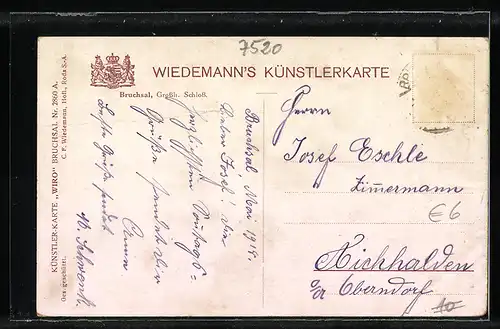 7520
WIEDEMANN'S KÜNSTLERKARTE
Bruchsal, Großh. Schloß.
KÜNSTLER-KARTE „WIRO" BRUCHSAL Nr. 2860 A.
C. F. Wiedemann, Hofl., Roda S.-A.
Ges. geschützt.
Bruchsal Mai 1914.
Lieber Josef!
herzlichsten Sonntags-
Grüße sendet dir
Anna
Beste Grüße sendet
Herrn
Josef Eschle
Zimmermann
€6
Aichhalden
o/a Oberndorf
10